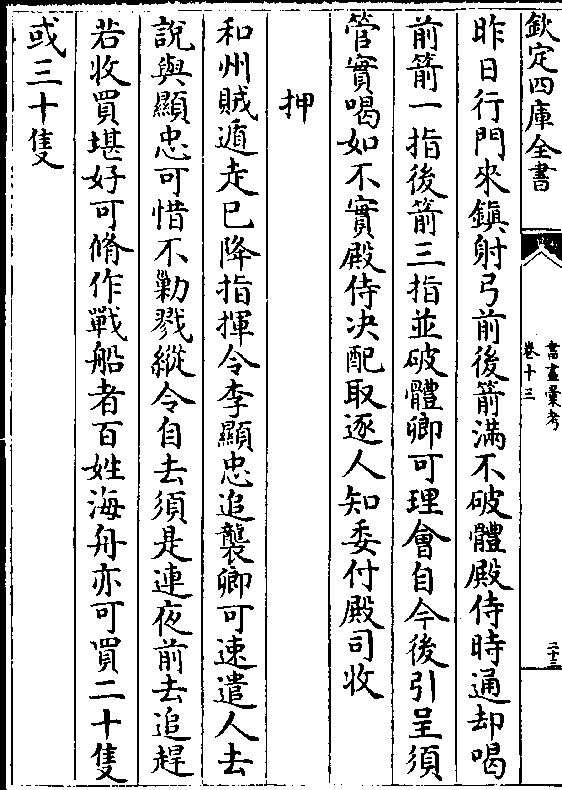 欽定四庫全書
書畫彙考
卷十三
二十三
昨日行門來鎮射弓前後箭滿不破體殿侍時通却喝
前箭一指後箭三指並破體卿可理會自今後引呈須
管實喝如不實殿侍决配取逐人知委付殿司收
押
和州賊遁走已降指揮令李顯忠追襲卿可速遣人去
說與顯忠可惜不勦戮縱令自去須是連夜前去追趕
若收買堪好可脩作戰船者百姓海舟亦可買二十隻
或三十隻